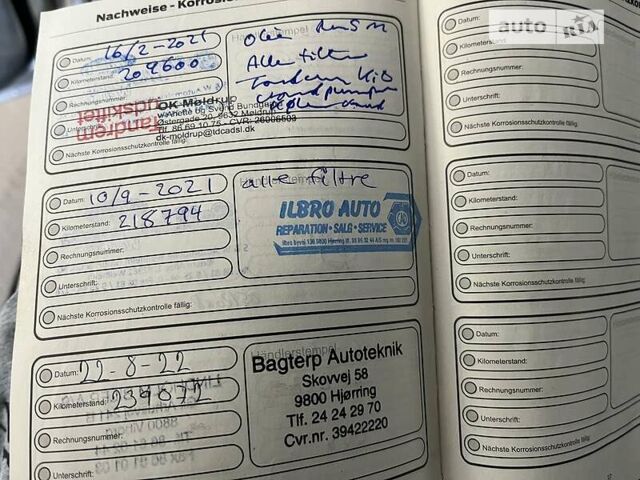 Nachweise - Korros
Datum: 16/2-2021
Kilometerstand: 209600
Rechnungsnummer:
Unterschrift:
Nächste Korrosionsschutzkontrolle fällig:
Händlerstempel
Olie
Alle filter
OK Møldrup
v/Anette og Svend Bundgaard
Østergade 20, 9632 Møldrup
Tlf. 86 69 10 75 - CVR: 26006503
dk-moldrup@ldcadsl.dk
Datum: 10/9-2021
Kilometerstand: 218794
Rechnungsnummer:
Unterschrift:
Nächste Korrosionsschutzkontrolle fällig:
alle filtre
ILBRO AUTO
REPARATION · SALG · SERVICE
Datum: 22-8-22
Kilometerstand: 239072
Rechnungsnummer:
Unterschrift:
Händlerstempel
Bagterp Autoteknik
Skovvej 58
9800 Hjørring
Tlf. 24 24 29 70
Cvr.nr. 39422220
Datum:
Kilometerstand:
Rechnungsnummer:
Unterschrift:
Nächste Korrosionsschutzkontrolle fällig:
Datum:
Kilometerstand:
Rechnungsnummer:
Unterschrift:
Nächste Korrosionsschutzkontrolle fällig:
Datum:
Kilometerstand:
Rechnungsnummer:
Unterschrift:
Nächste Korrosionsschutzkontrolle fällig:
auto RIA